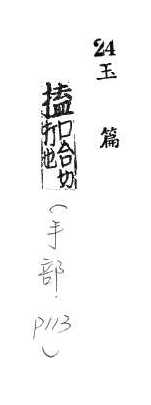 24
玉篇
搕口合切打也
(手部. p113)